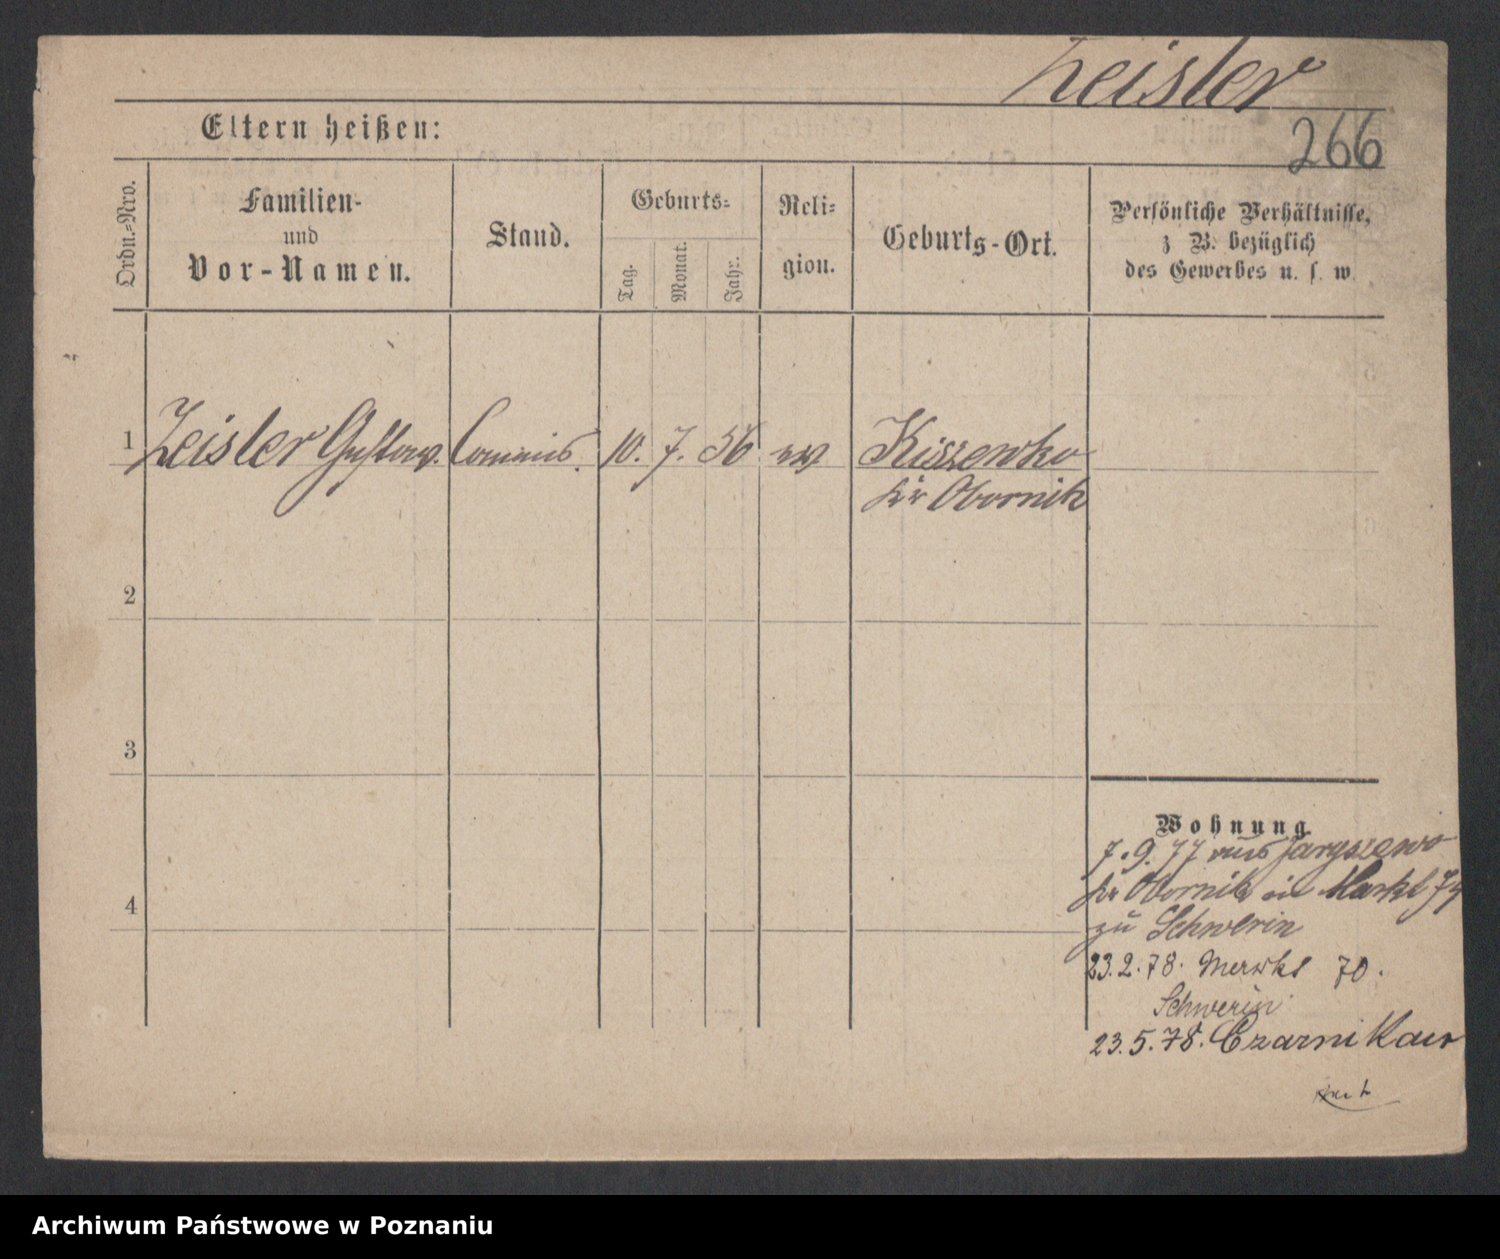 Zeisler
266
Eltern heißen:
Ordn.-Nro.
Familien-
und
Vor-Namen.
Stand.
Geburts-
Tag.
Monat.
Jahr.
Reli-
gion.
Geburts-Ort.
Persönliche Verhältnisse,
z B. bezüglich
des Gewerbes u. s. w.
1 Zeisler Gustav. Commis. 10. 7. 56 ev Kiszewko
Kr Obornik
2
3
4
Wohnung
7.9.77 aus Jaryszewo
Kr Obornik in Markt 74
zu Schwerin
23.2.78. 70.
Schwerin
23.5.78. Czarnikau
Archiwum Państwowe w Poznaniu